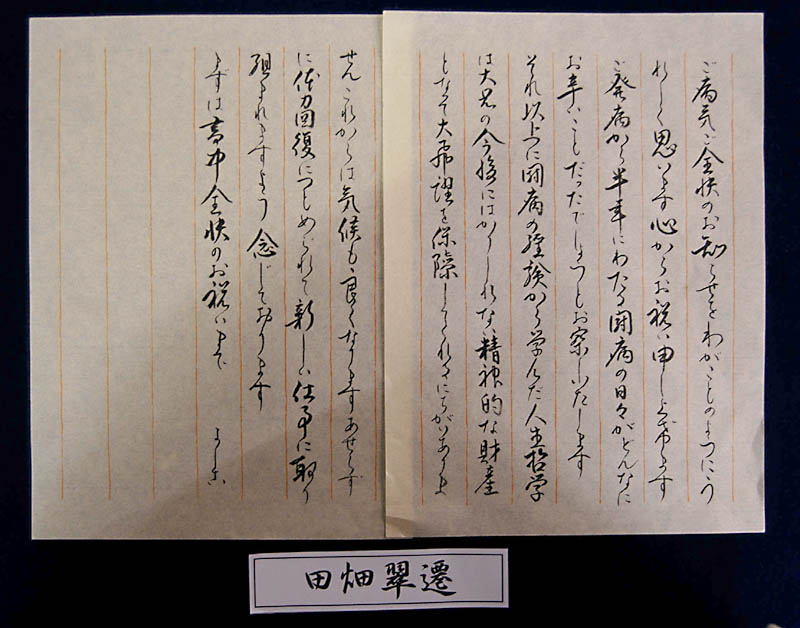 ご病気ご全快のお知らせをわがことのようにう
れしく思います心からお祝い申し上げます
ご発病から半年にわたる闘病の日々がどんなに
お辛いことだったでしょうとお察しいたします
それ以上に闘病の経験から学んだ人生哲学
は大兄の今後にはかりしれない精神的な財産
となって大飛躍を保障してくれるにちがいありま
せんこれからは気候も良くなりますあせらず
に体力回復につとめられて新しい仕事に取り
組まれますよう念じております
まずは書中全快のお祝いまで
田畑翠遷